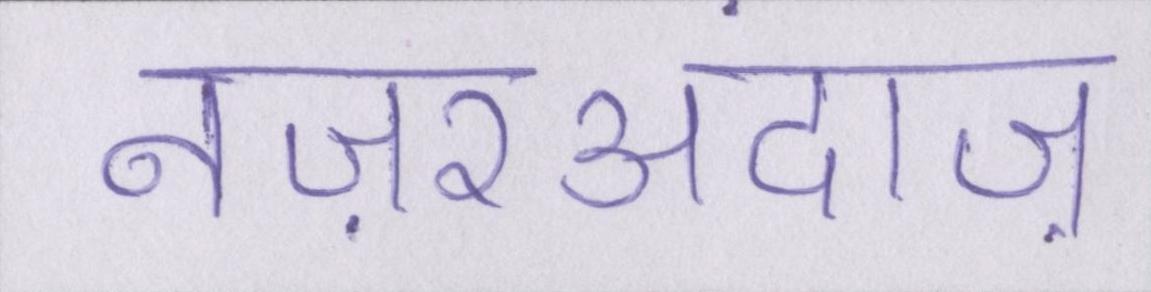 नज़रअंदाज़